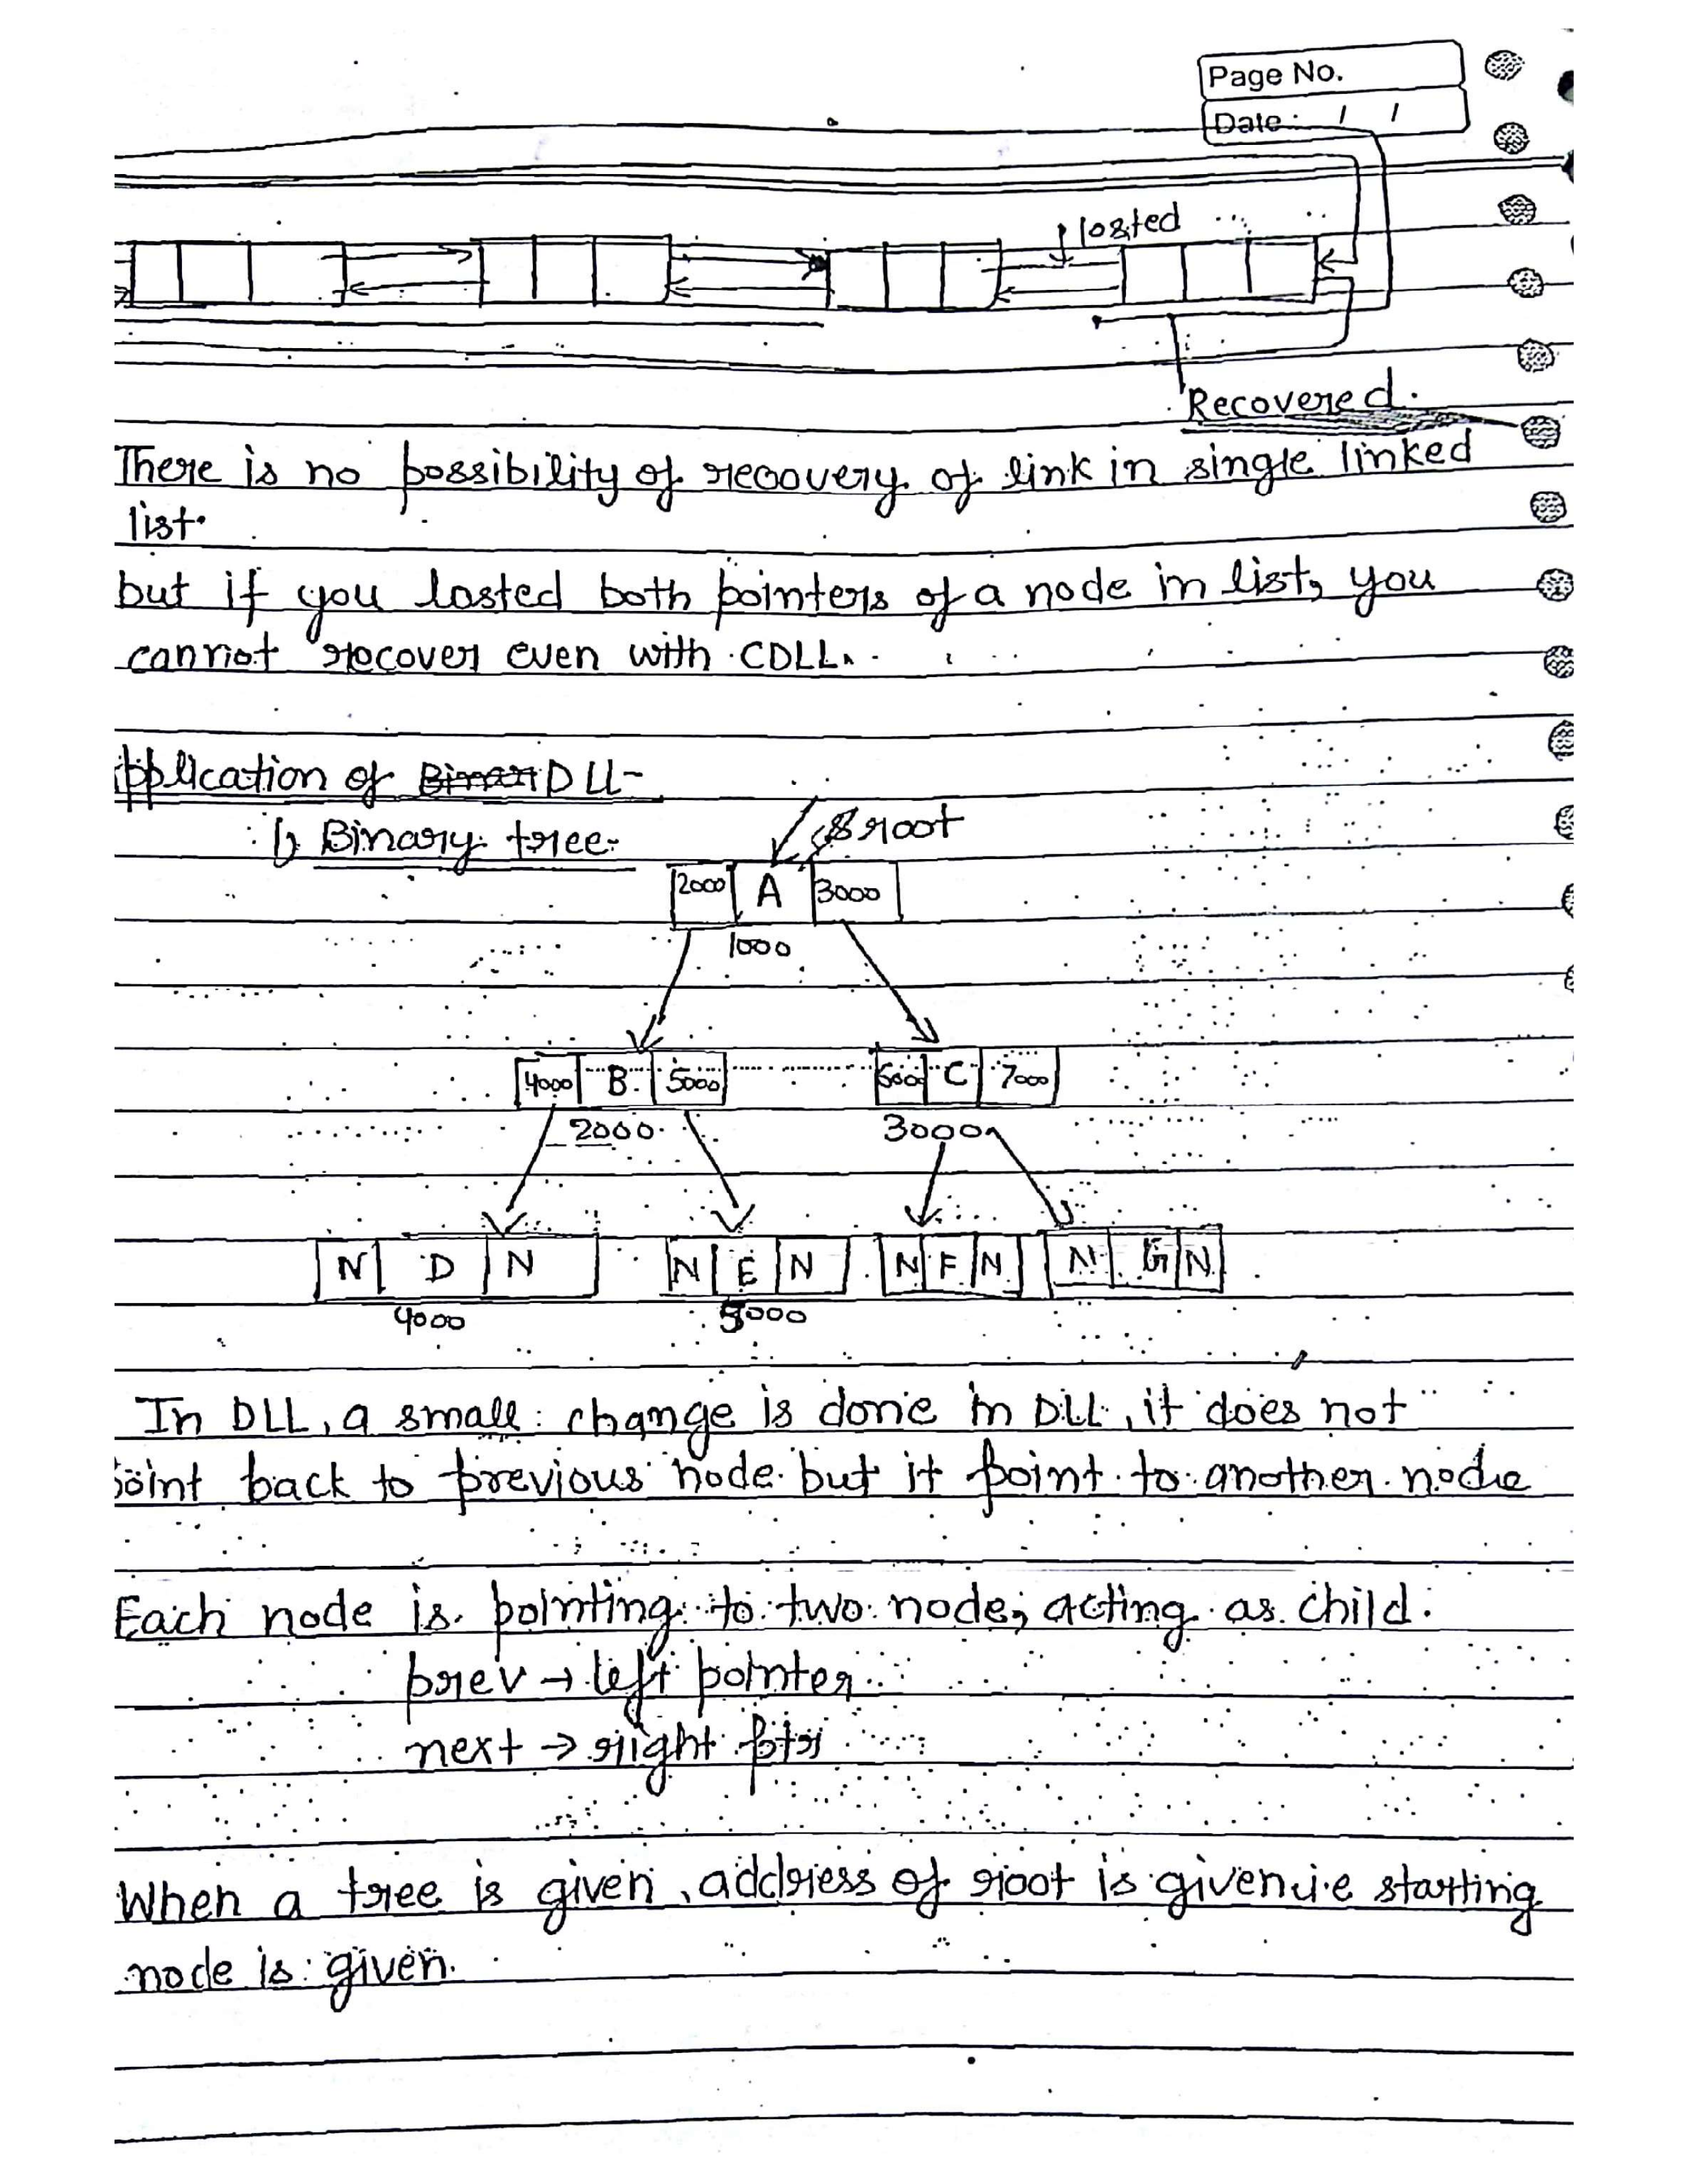 Page No.
Date: / /
losted
Recovered.
There is no possibility of recovery of link in single linked
list.
but if you losted both pointers of a node in list, you
cannot recover even with CDLL.
pplication of Binar DLL-
1) Binary tree-
root
2000 A 3000
1000
4000 B 5000 6000 C 7000
2000 3000
N D N N E N N F N N G N
4000 5000
In DLL, a small change is done in DLL, it does not
point back to previous node but it point to another node
Each node is pointing to two node, acting as child.
prev → left pointer
next → right ptr
When a tree is given, address of root is given i.e starting
node is given.